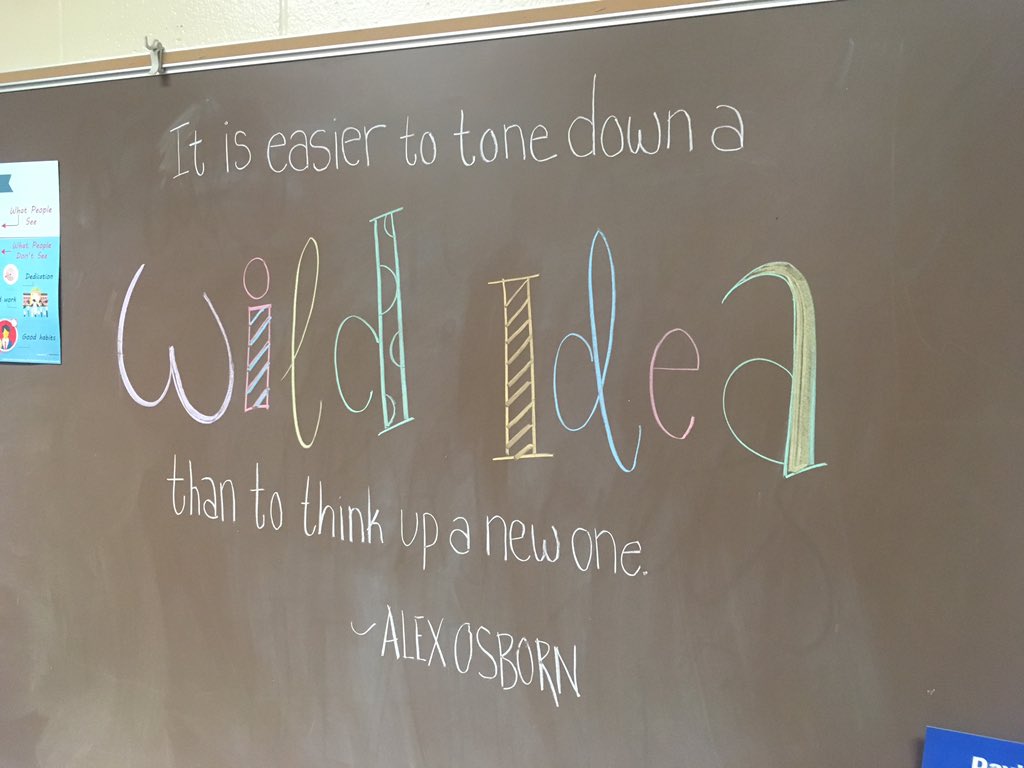 It is easier to tone down a
Wild Idea
than to think up a new one.
~ALEX OSBORN
What People
See
What People
Don't See
Dedication
Good habits